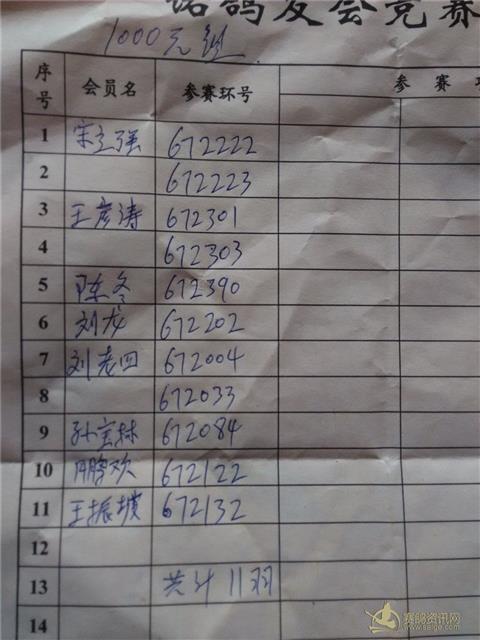 鸽友会竞赛
1000元组
序号 会员名 参赛环号 参赛项
1 宋立强 672222
2 672223
3 王彦涛 672301
4 672303
5 陈冬 672390
6 刘龙 672202
7 刘老四 672004
8 672033
9 孙宝林 672084
10 鹏欢 672122
11 王振 672132
12
13 共计11羽
14
赛鸽资讯网
www.saige.com